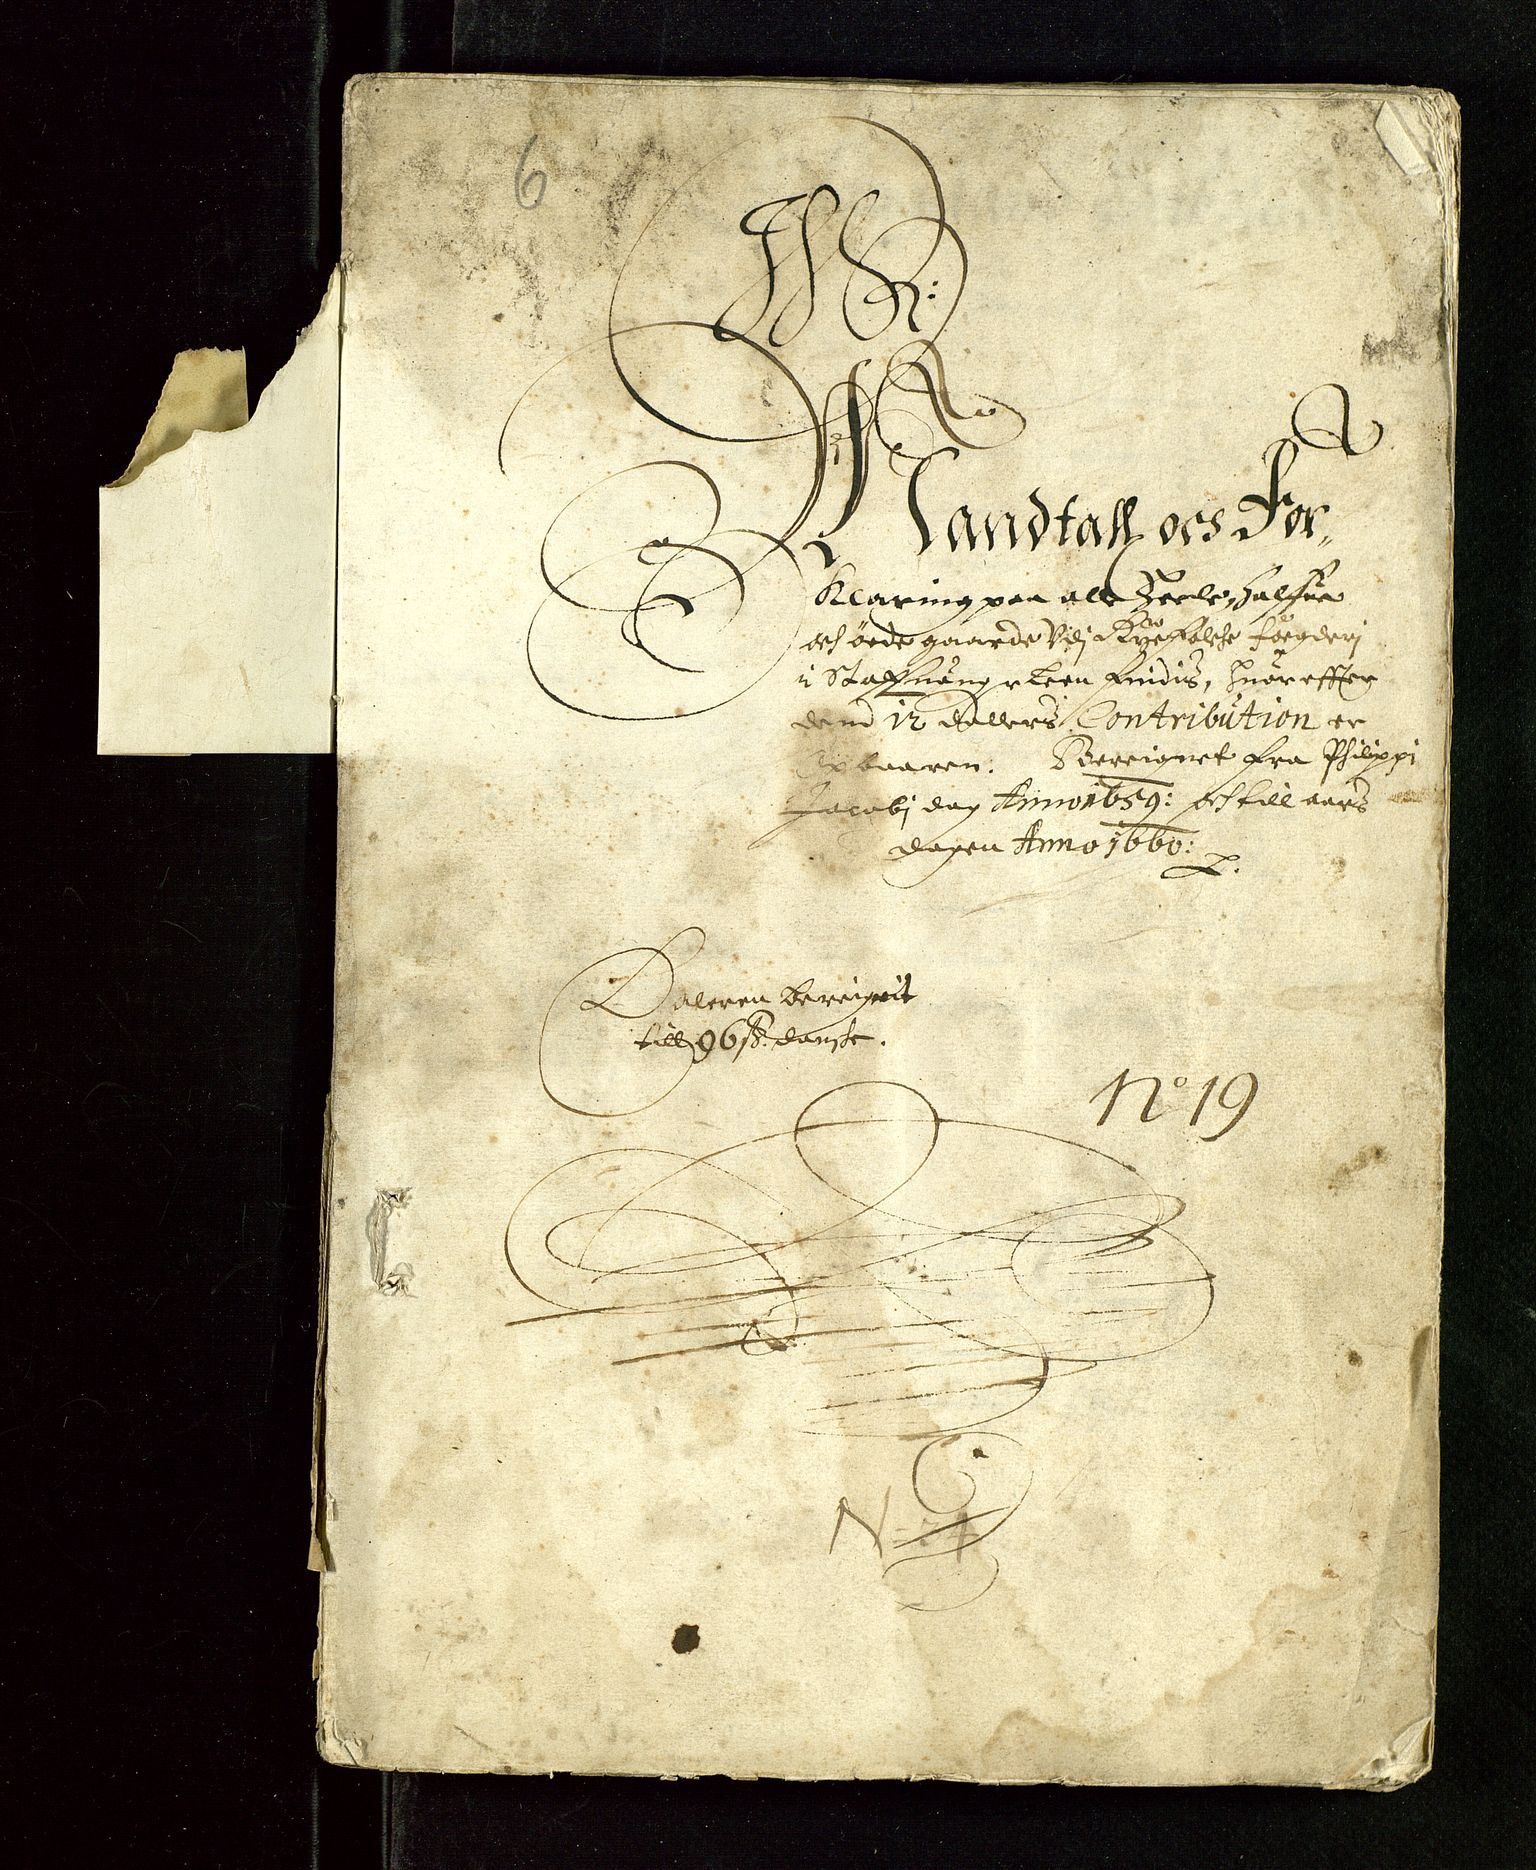 6
Mandtall och For„
Klaring paa alle Heele, halfue
och öede gaarde Vdj Ryefölche fougderj
i Staffuanger Leen findis, huor effter
dend 12 dallers Contribution er
Opbaaren. Bereignet fra Philippi
Jacobj dag Anno 1659: och till aars
dagen Anno 1660:
Daleren bereignit
till 96 sk: danske.
No 19